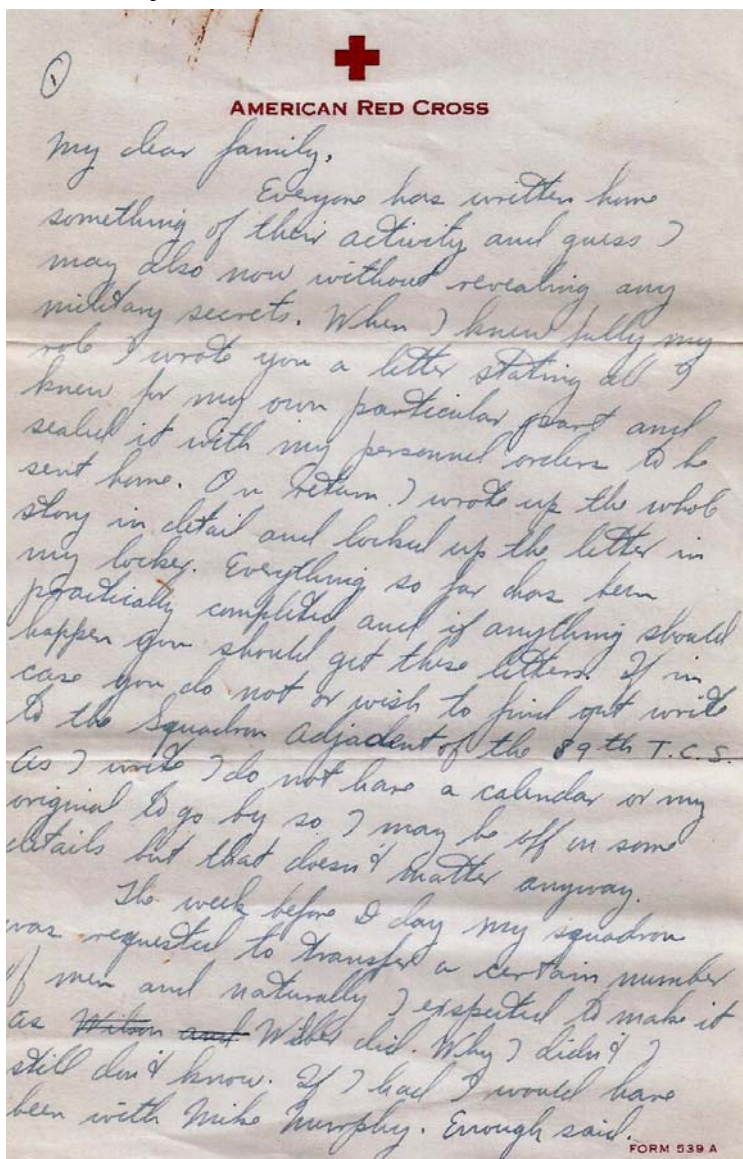 1
AMERICAN RED CROSS
My dear family,
Everyone has written home
something of their activity and guess I
may also now without revealing any
military secrets. When I knew fully my
role I wrote you a letter stating all I
knew for my own particular part and
sealed it with my personnel orders to be
sent home. On return I wrote up the whole
story in detail and locked up the letter in
my locker. Everything so far has been
practically completed and if anything should
happen you should get these letters. If in
case you do not or wish to find out write
to the Squadron Adjadent of the 89th T.C.S.
As I write I do not have a calendar or my
original to go by so I may be off on some
details but that doesn't matter anyway.
The week before D day my squadron
was requested to transfer a certain number
of men and naturally I expected to make it
as Wilson and Wilber did. Why I didn't I
still don't know. If I had I would have
been with Mike Murphy. Enough said.
FORM 539 A